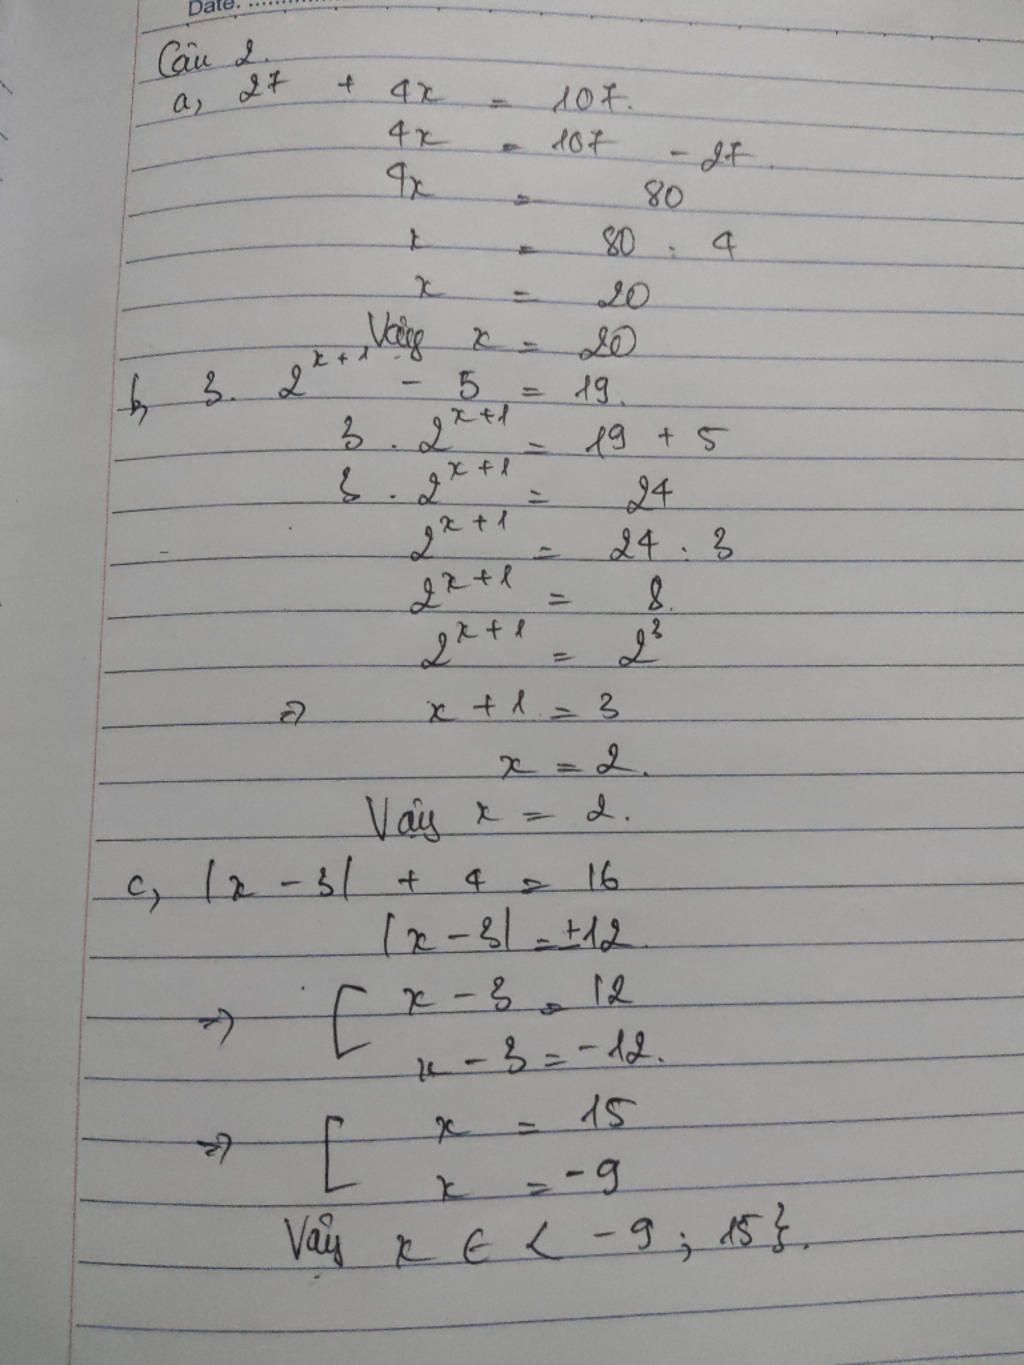 Date:
Câu 2.
a, 27 + 4x = 107.
4x = 107 - 27.
4x = 80
x = 80 : 4
x = 20
Vậy x = 20
b, 3. 2^{x+1} - 5 = 19.
3 . 2^{x+1} = 19 + 5
3 . 2^{x+1} = 24
2^{x+1} = 24 : 3
2^{x+1} = 8.
2^{x+1} = 2^3
=> x + 1 = 3
x = 2.
Vậy x = 2.
c, |x - 3| + 4 = 16
|x - 3| = ±12.
=> [ x - 3 = 12
x - 3 = -12.
=> [ x = 15
x = -9
Vậy x ∈ { -9 ; 15}.